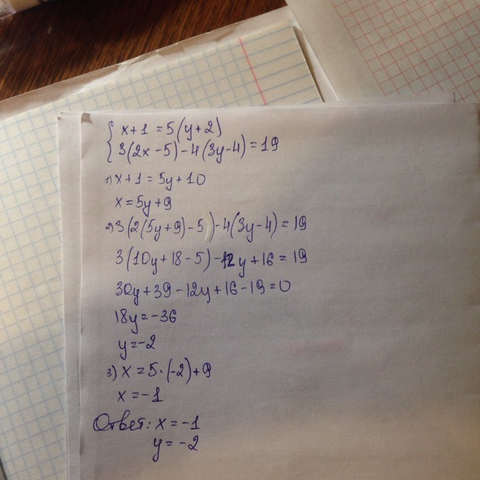 { x+1 = 5(y+2)
{ 3(2x-5)-4(3y-4)=19
1) x+1 = 5y+10
x = 5y+9
2) 3(2(5y+9)-5)-4(3y-4)=19
3(10y+18-5)-12y+16=19
30y+39-12y+16-19=0
18y=-36
y=-2
3) x=5·(-2)+9
x=-1
Ответ: x=-1
y=-2